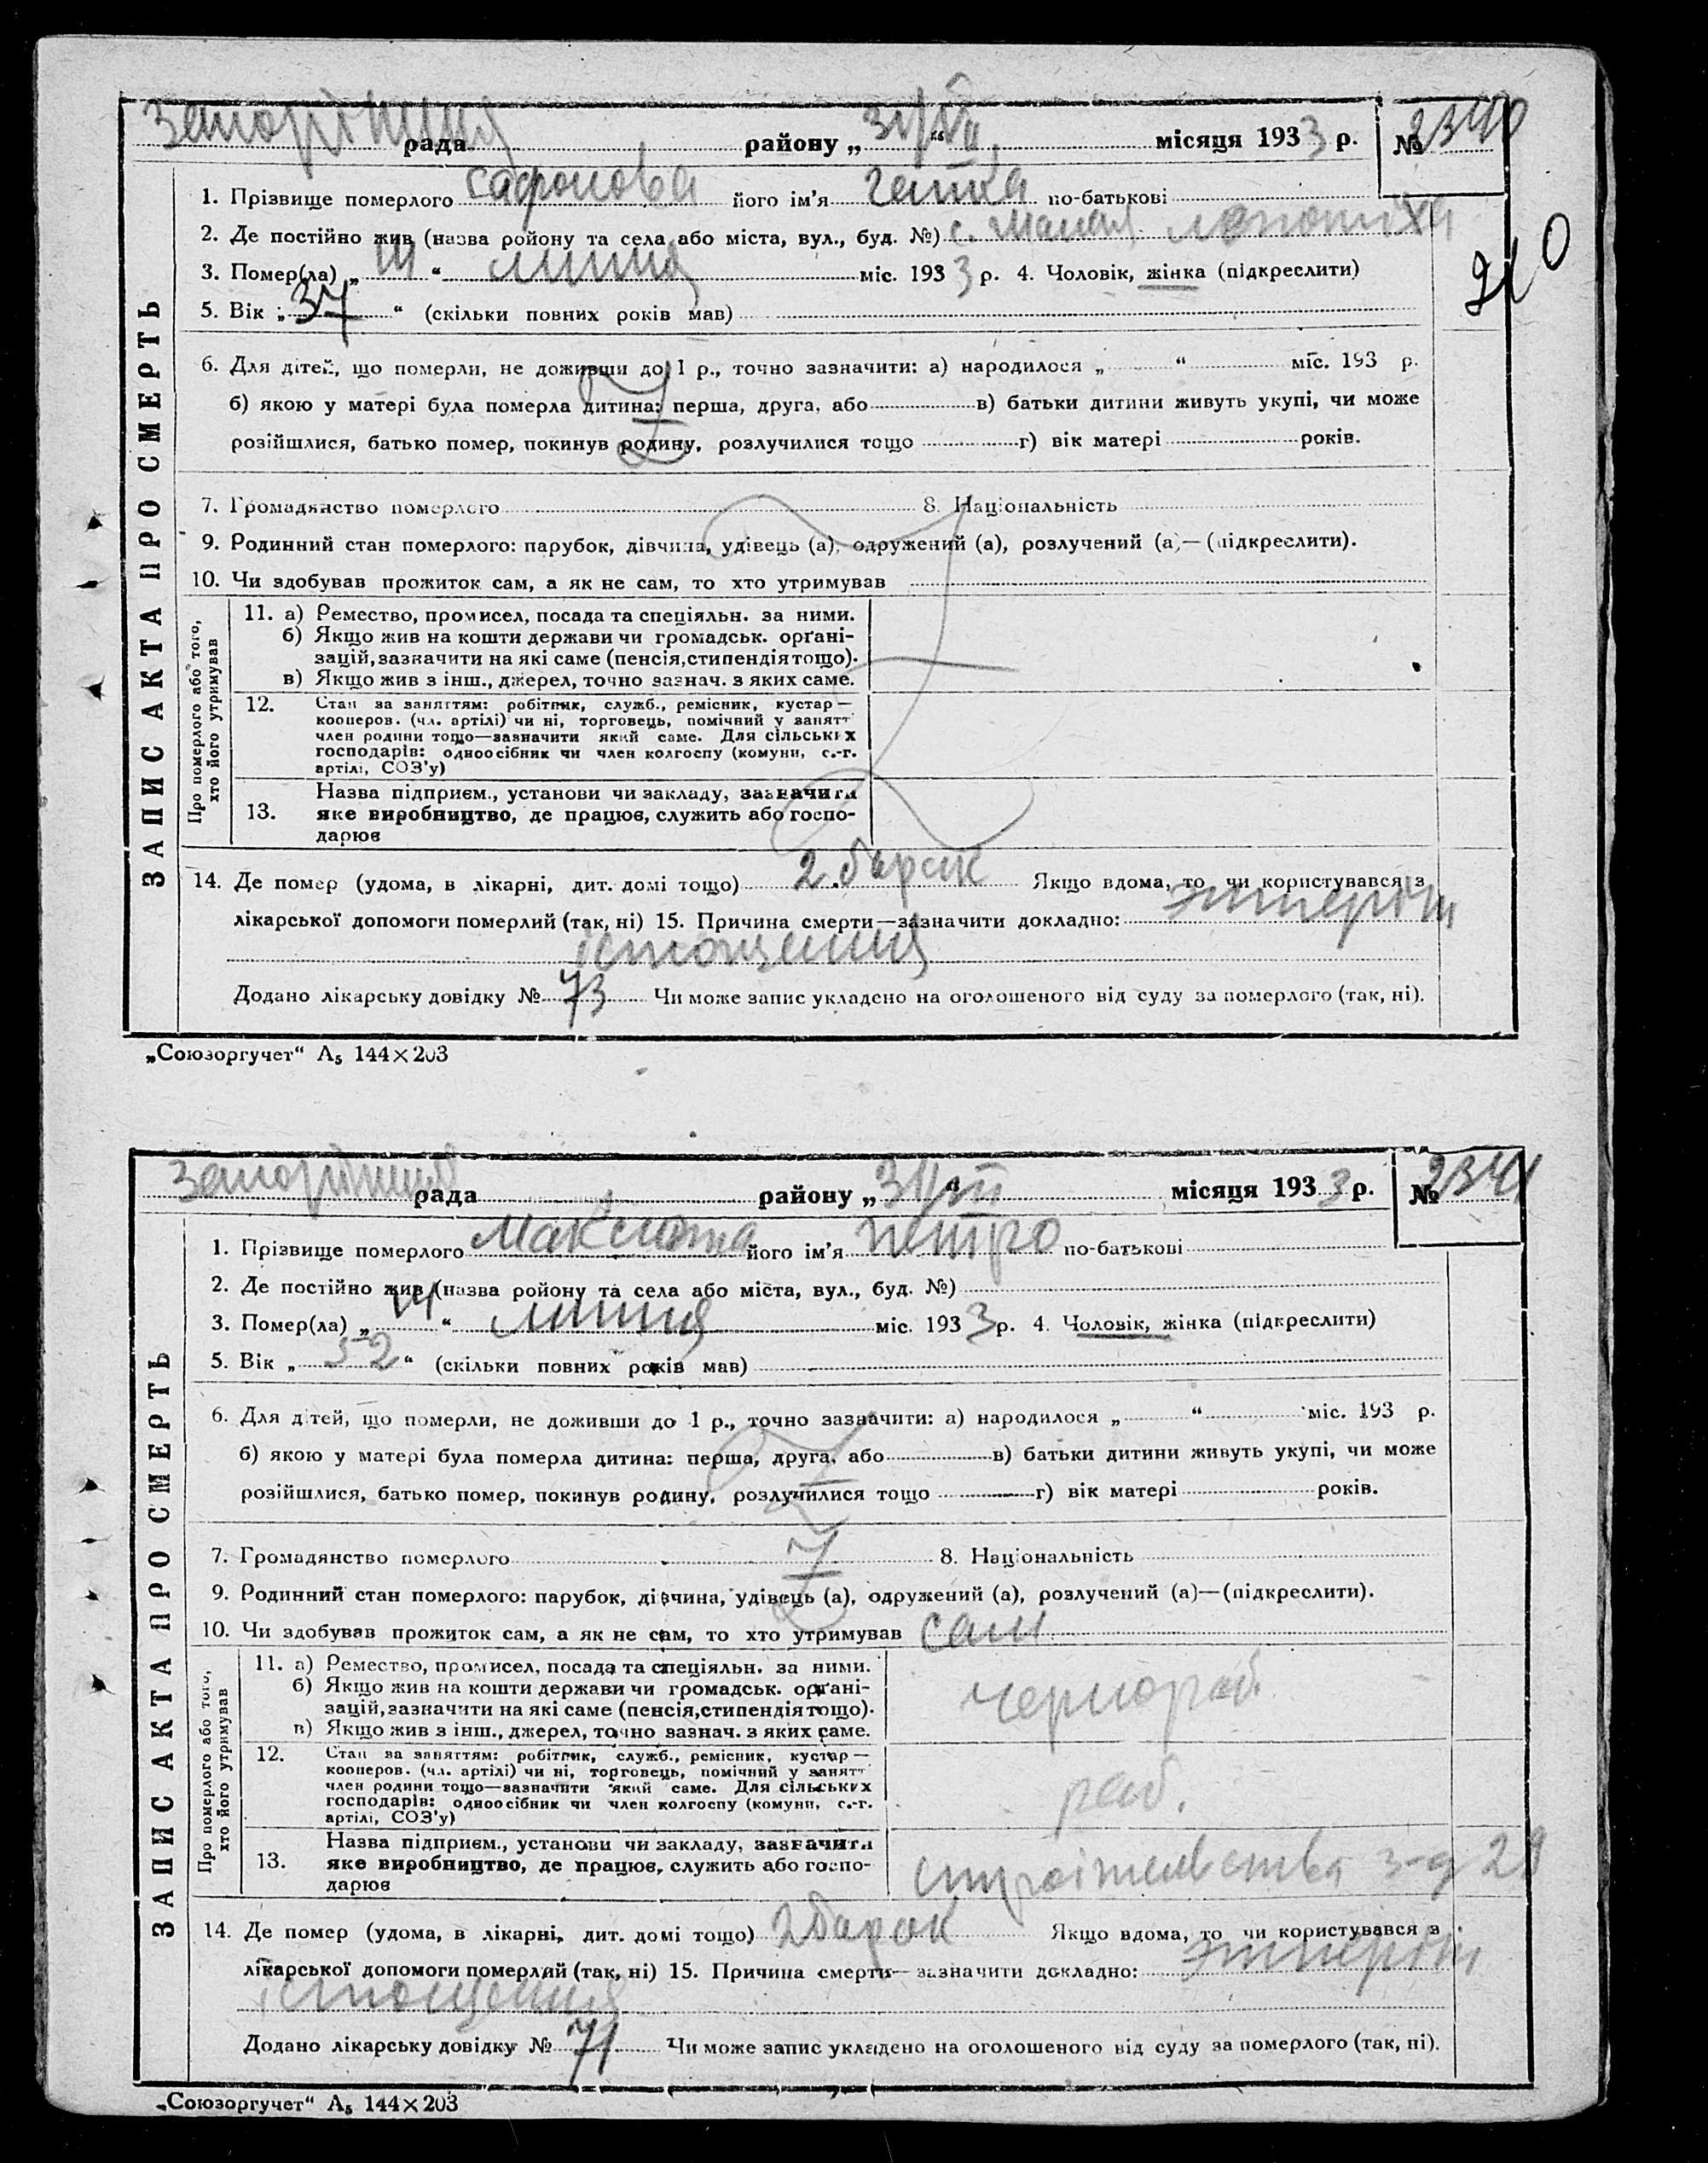 рада району „31/VII“ місяця 1933 р. № 2340
1. Прізвище померлого Сафонова його ім'я по-батькові
2. Де постійно жив (назва ройону та села або міста, вул., буд. №) с. Малая
3. Помер(ла) „ “ липня міс. 1933 р. 4. Чоловік, жінка (підкреслити)
210
5. Вік „37“ (скільки повних років мав)
6. Для дітей, що померли, не доживши до 1 р., точно зазначити: а) народилося „ “ міс. 193 р.
б) якою у матері була померла дитина: перша, друга, або в) батьки дитини живуть укупі, чи може
розійшлися, батько помер, покинув родину, розлучилися тощо г) вік матері років.
7. Громадянство померлого 8. Національність
9. Родинний стан померлого: парубок, дівчина, удівець (а), одружений (а), розлучений (а)—(підкреслити).
10. Чи здобував прожиток сам, а як не сам, то хто утримував
ЗАПИС АКТА ПРО СМЕРТЬ
Про померлого або того, хто його утримував
11. а) Ремество, промисел, посада та спеціяльн. за ними.
б) Якщо жив на кошти держави чи громадськ. орґані-
зацій, зазначити на які саме (пенсія, стипендія тощо).
в) Якщо жив з інш., джерел, точно зазнач. з яких саме.
12. Стан за заняттям: робітник, служб., ремісник, кустар —
кооперов. (чл. артілі) чи ні, торговець, помічний у занятт
член родини тощо—зазначити який саме. Для сільських
господарів: одноосібник чи член колгоспу (комуни, с.-г.
артілі, СОЗ'у)
13. Назва підприєм., установи чи закладу, зазначити
яке виробництво, де працює, служить або госпо-
дарює
14. Де помер (удома, в лікарні, дит. домі тощо) 2 барак Якщо вдома, то чи користувався з
лікарської допомоги померлий (так, ні) 15. Причина смерти—зазначити докладно:
істощения
Додано лікарську довідку № 73 Чи може запис укладено на оголошеного від суду за померлого (так, ні).
„Союзоргучет“ А₅ 144×203
рада району „31/VII“ місяця 1933 р. № 2341
1. Прізвище померлого його ім'я Петро по-батькові
2. Де постійно жив (назва ройону та села або міста, вул., буд. №)
3. Помер(ла) „ “ липня міс. 1933 р. 4. Чоловік, жінка (підкреслити)
5. Вік „52“ (скільки повних років мав)
6. Для дітей, що померли, не доживши до 1 р., точно зазначити: а) народилося „ “ міс. 193 р.
б) якою у матері була померла дитина: перша, друга, або в) батьки дитини живуть укупі, чи може
розійшлися, батько помер, покинув родину, розлучилися тощо г) вік матері років.
7. Громадянство померлого 8. Національність
9. Родинний стан померлого: парубок, дівчина, удівець (а), одружений (а), розлучений (а)—(підкреслити).
10. Чи здобував прожиток сам, а як не сам, то хто утримував сам
ЗАПИС АКТА ПРО СМЕРТЬ
Про померлого або того, хто його утримував
11. а) Ремество, промисел, посада та спеціяльн. за ними.
б) Якщо жив на кошти держави чи громадськ. орґані-
зацій, зазначити на які саме (пенсія, стипендія тощо).
в) Якщо жив з інш., джерел, точно зазнач. з яких саме.
чернораб.
12. Стан за заняттям: робітник, служб., ремісник, кустар —
кооперов. (чл. артілі) чи ні, торговець, помічний у занятт
член родини тощо—зазначити який саме. Для сільських
господарів: одноосібник чи член колгоспу (комуни, с.-г.
артілі, СОЗ'у)
раб.
13. Назва підприєм., установи чи закладу, зазначити
яке виробництво, де працює, служить або госпо-
дарює
строітельства з-д 29
14. Де помер (удома, в лікарні, дит. домі тощо) 2 барак Якщо вдома, то чи користувався з
лікарської допомоги померлий (так, ні) 15. Причина смерти—зазначити докладно:
істощения
Додано лікарську довідку № 71 Чи може запис укладено на оголошеного від суду за померлого (так, ні).
„Союзоргучет“ А₅ 144×203